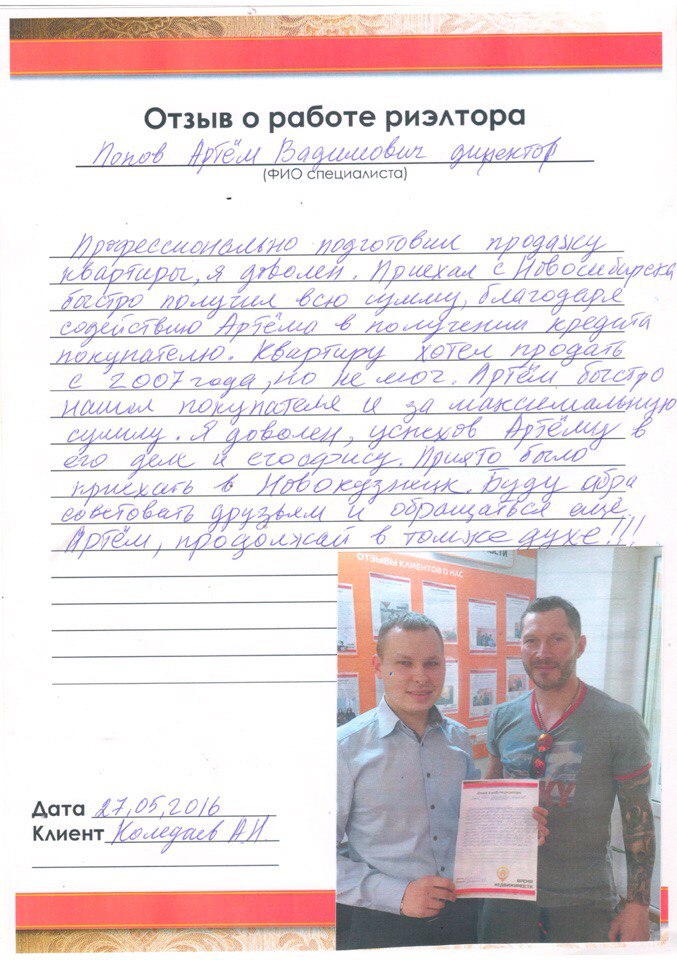 Отзыв о работе риэлтора
Попов Артём Вадимович директор
(ФИО специалиста)
Профессионально подготовил продажу
квартиры, я доволен. Приехал с Новосибирска
быстро получил всю сумму, благодаря
содействию Артёма в получении кредита
покупателю. Квартиру хотел продать
с 2007 года, но не мог. Артём быстро
нашол покупателя и за максимальную
сумму. Я доволен, успехов Артёму в
его деле и его офису. Прията было
приехать в Новокузнецк. Буду
советовать друзьям и обращаться ещё
Артём, продолжай в томже духе!!!
ОТЗЫВЫ КЛИЕНТОВ О НАС
ВРЕМЯ
НЕДВИЖИМОСТИ
Дата 27,05,2016
Клиент Коледаев А И